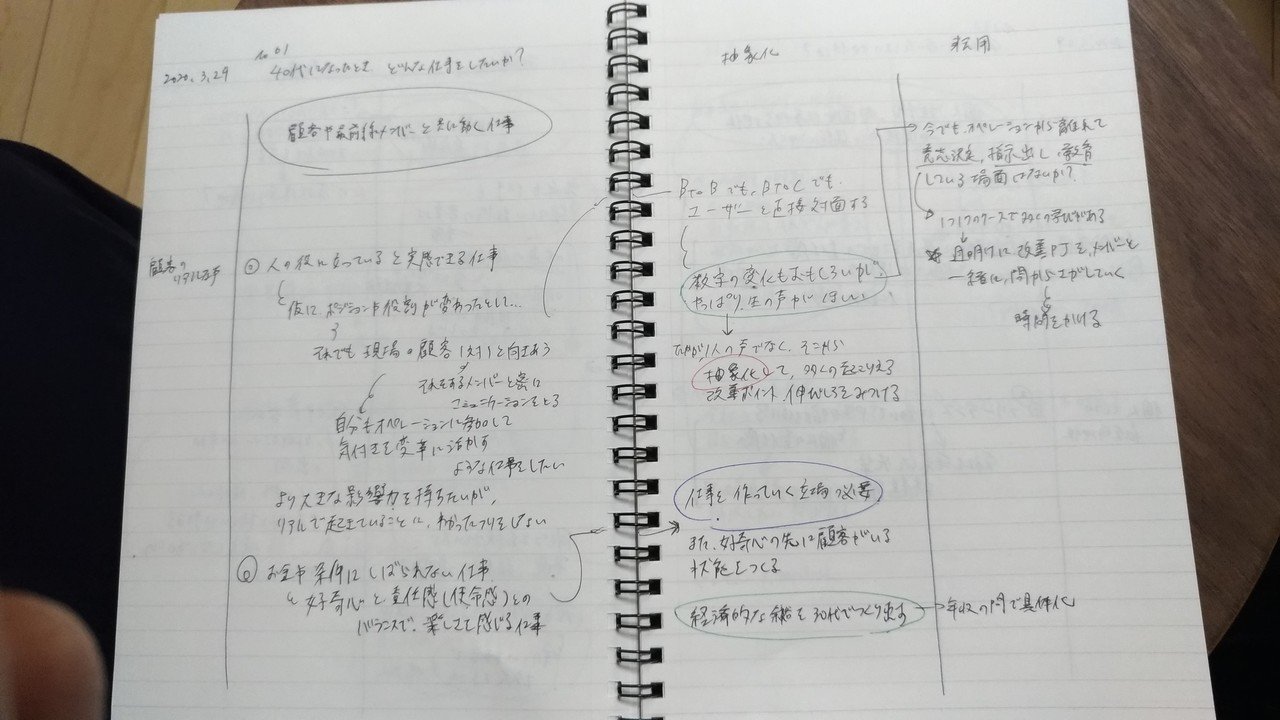 2020.3.29
No 01
40代になったとき どんな仕事をしたいか?
顧客や最前線メンバーと共に働く仕事
顧客の
リアルな声
① 人の役に立っていると実感できる仕事
仮に、ポジションや役割が変わったとして…
それでも現場の顧客1対1と向きあう
それをするメンバーと密に
コミュニケーションをとる
自分もオペレーションに参加して
気付きを変革に活かす
ような仕事をしたい
より大きな影響力を持ちたいが、
リアルで起きていることに、わかったフリをしない
② お金や条件にしばられない仕事
好奇心と責任感(使命感)との
バランスで、楽しさを感じる仕事
抽象化
BtoBでも、BtoCでも、
ユーザーと直接対面する
数字の変化もおもしろいが
やっぱり、生の声がほしい
たかが1人の声でなく、そこから
抽象化して、多くの起こりえる
改善ポイント、伸びしろをみつける
仕事を作っていく立場の必要
また、好奇心の先に顧客がいる
状態をつくる
経済的な を30代でつくり出す
転用
今でも、オペレーションから離れて
意志決定、指示出し、教育
している場面はないか?
1つ1つのケースで多くの学びがある
に改善PJを、メンバーと
一緒に、間から上がしていく
時間をかける
年収の で具体化